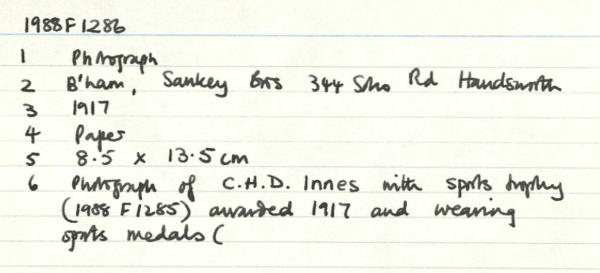 1988 F 1286
1 Photograph
2 B'ham, Sankey Bros 344 Soho Rd Handsworth
3 1917
4 Paper
5 8.5 x 13.5 cm
6 Photograph of C.H.D. Innes with sports trophy
(1988 F 1285) awarded 1917 and wearing
sports medals (